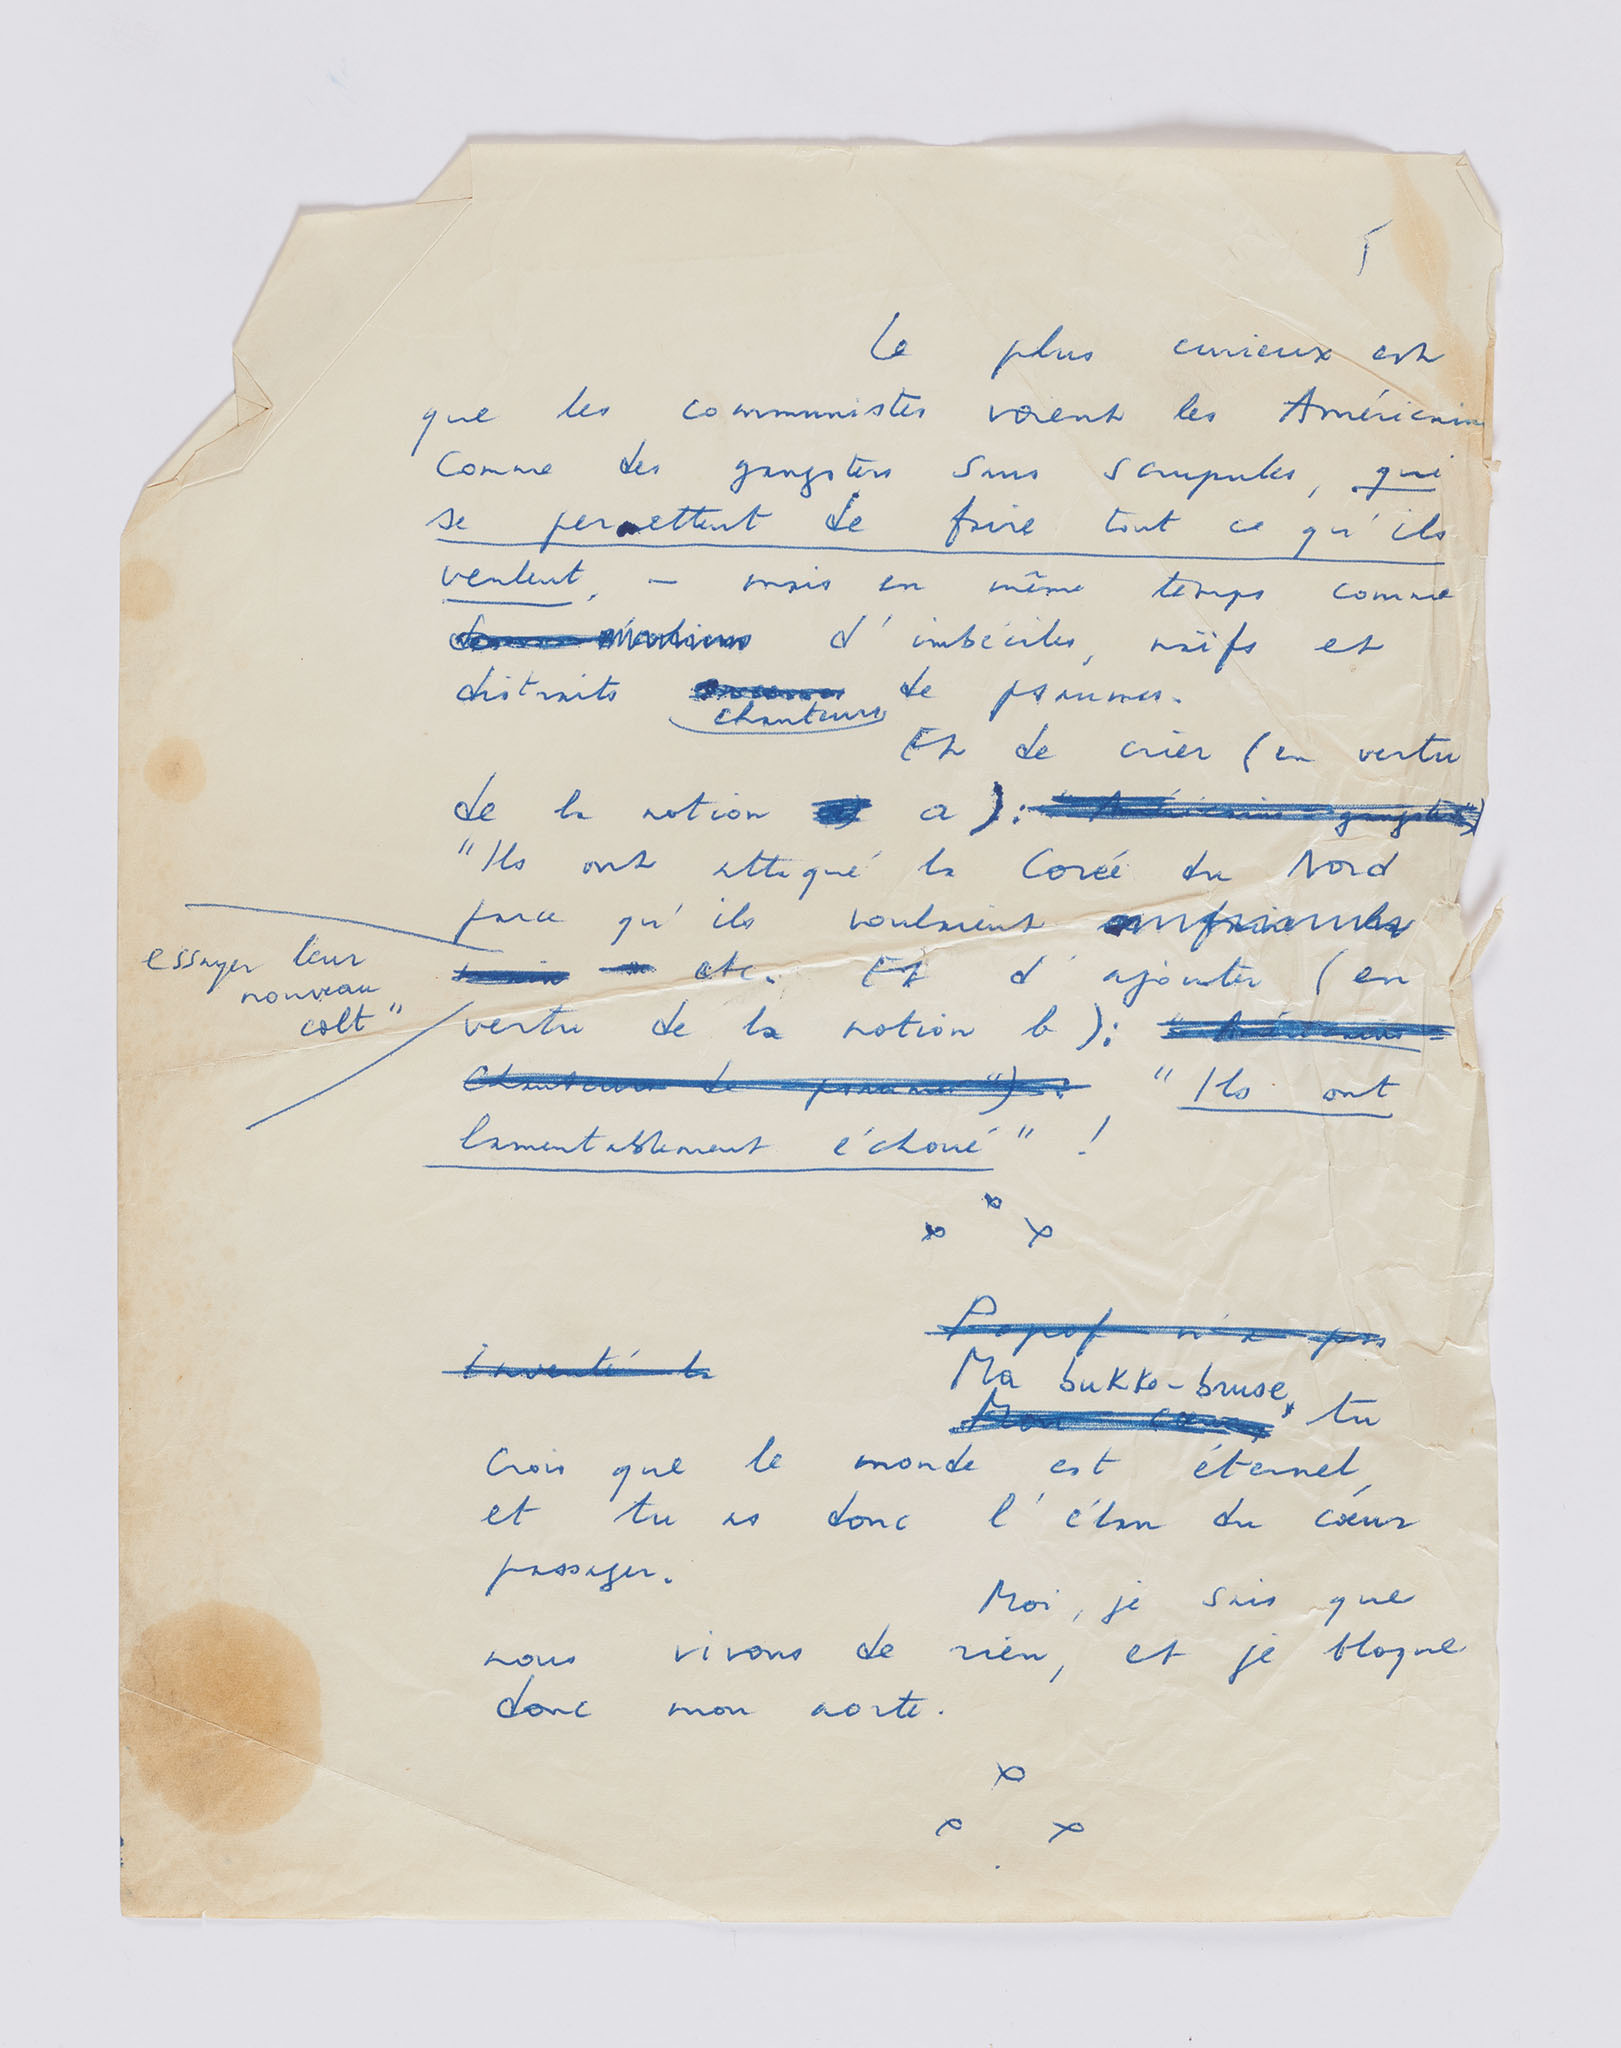 Le plus curieux est
que les communistes voient les Américains
comme des gangsters sans scrupules, qui
se permettent de faire tout ce qu'ils
veulent, – mais en même temps comme
d'imbéciles, naïfs et
distraits de psaumes.
chanteurs
Et de crier (en vertu
de la notion a):
"Ils ont attaqué la Corée du Nord
parce qu'ils voulaient
essayer leur
nouveau
colt"
etc. Et d'ajouter (en
vertu de la notion b):
chanteurs de psaumes"): "Ils ont
lamentablement échoué"!
x
x x
Popof n'a pas
inventé la
Ma bukko-bruse,
Mon cœur, tu
crois que le monde est éternel,
et tu as donc l'élan du cœur
passager.
Moi, je sais que
nous vivons de rien, et je bloque
donc mon
x
x x